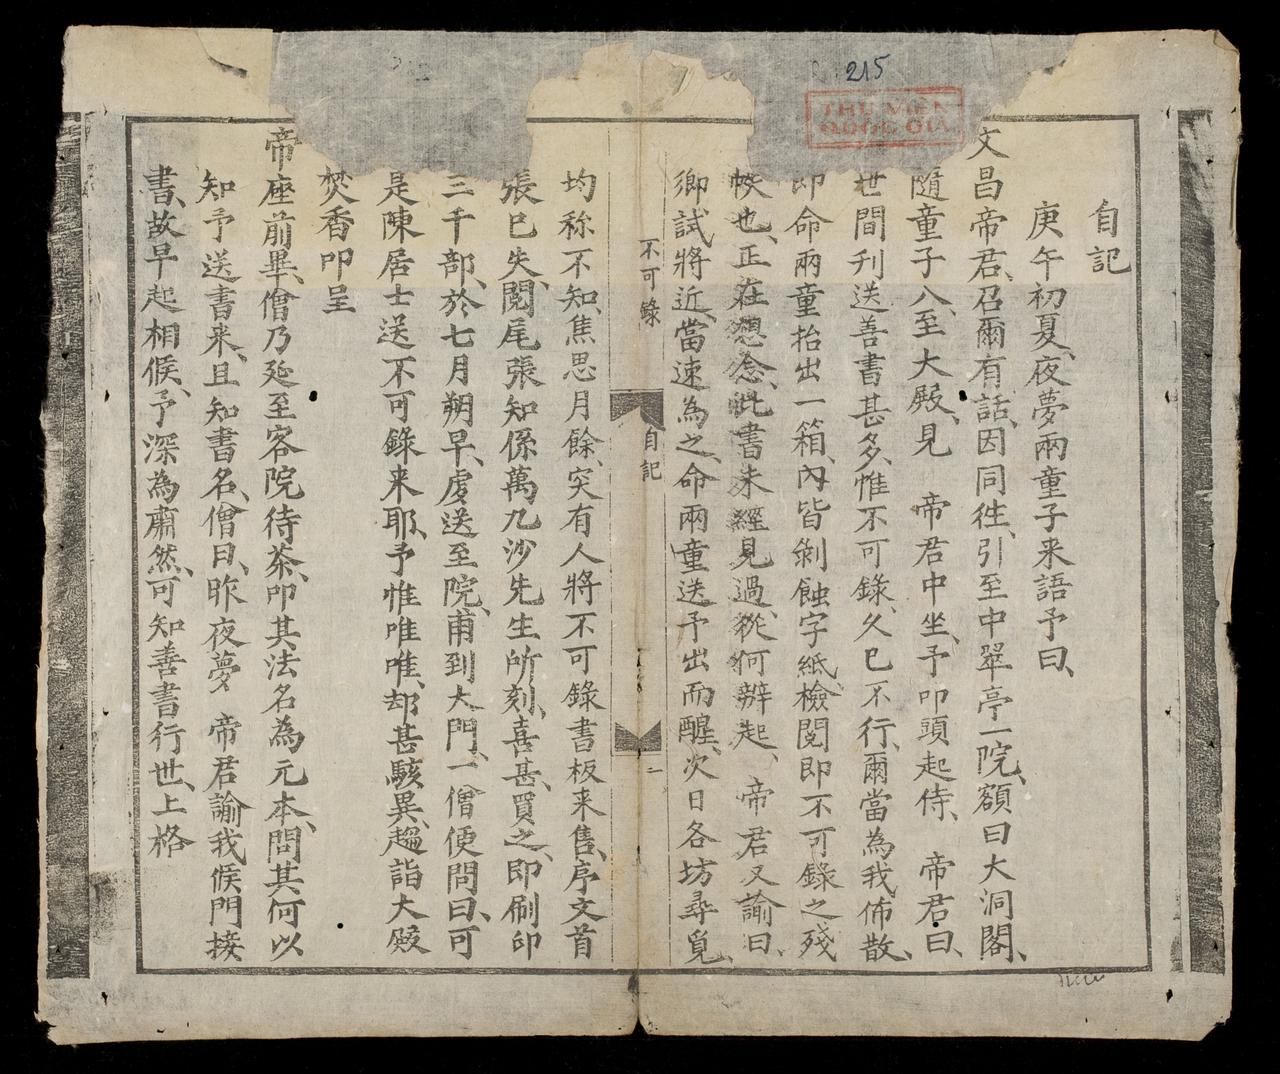 215
THƯ VIỆN
QUỐC GIA
自記
庚午初夏、夜夢兩童子来語予曰、
文昌帝君、召爾有話、因同徃、引至中翠亭一院、額曰大洞閣、
隨童子入、至大殿、見 帝君中坐、予叩頭起侍、 帝君曰、
世間刊送善書甚多、惟不可錄、久已不行、爾當為我佈散、
即命兩童抬出一箱、內皆剝蝕字紙、檢閱即不可錄之殘
帙也、正在想念、此書未經見過、從何辦起、 帝君又諭曰、
鄉試將近、當速為之、命兩童送予出而醒、次日各坊尋覓、
不可錄
自記
二
均称不知、焦思月餘、突有人將不可錄書板来售、序文首
張已失、閱尾張知係萬九沙先生所刻、喜甚、買之、即刷印
三千部、於七月朔早、虔送至院、甫到大門、一僧便問曰、可
是陳居士送不可錄来耶、予惟唯唯、却甚駭異、趨詣大殿
焚香叩呈
帝座前畢、僧乃延至客院待茶、叩其法名為元本、問其何以
知予送書来、且知書名、僧曰、昨夜夢 帝君諭我候門接
書、故早起相候、予深為肅然、可知善書行世、上格